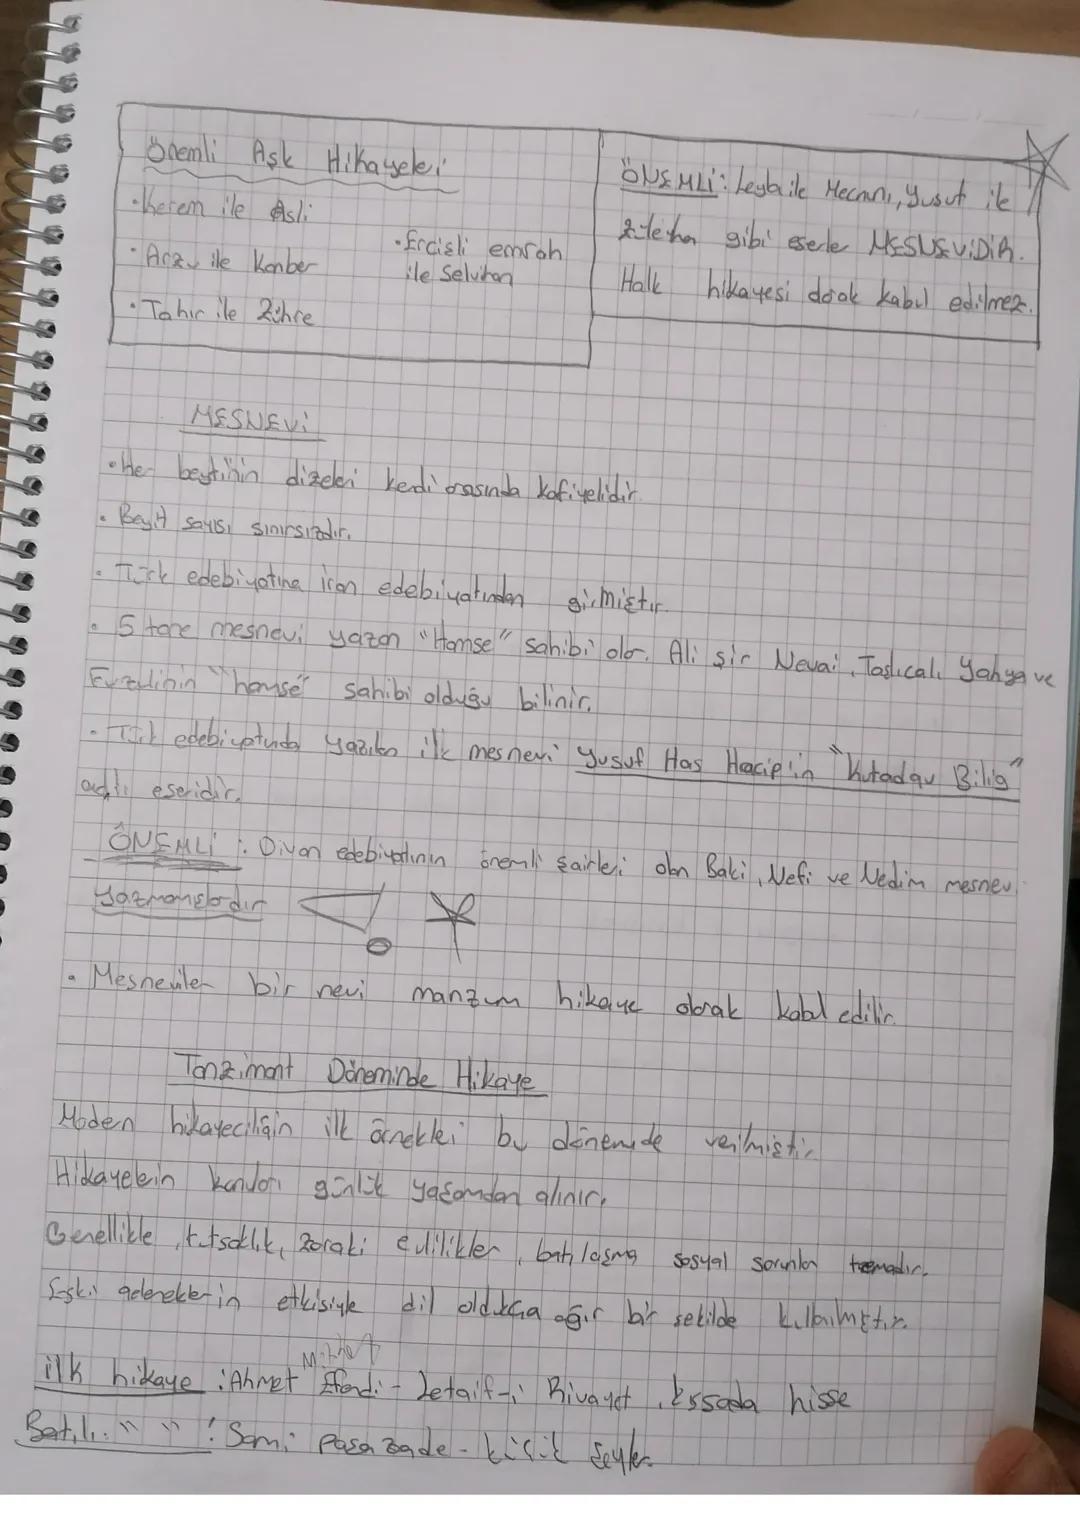 Önemli Aşk Hikayeleri
• Kerem ile Aslı
• Arzu ile Kanber
• Tahir ile Zühre
• Ercişli emrah
ile Selvihan
ÖNEMLİ: Leyla ile Mecnun, Yusuf ile
Züleyha gibi eserler MESNEVİDİR.
Halk hikayesi olarak kabul edilmez.
MESNEVİ
• Her beytinin dizeleri kendi arasında kafiyelidir.
• Beyit sayısı sınırsızdır.
• Türk edebiyatına İran edebiyatından girmiştir.
• 5 tane mesnevi yazan "Hamse" sahibi olur. Ali Şir Nevai, Taşlıcalı Yahya ve
"hamse" sahibi olduğu bilinir.
• Türk edebiyatında yazılan ilk mesnevi Yusuf Has Hacip'in "Kutadgu Bilig"
adlı eseridir.
ÖNEMLİ : Divan edebiyatının önemli şairleri olan Baki, Nefi ve Nedim mesnevi
yazmamışlardır
• Mesneviler bir nevi manzum hikaye olarak kabul edilir.
Tanzimant Döneminde Hikaye
Modern hikayeciliğin ilk örnekleri bu dönemde verilmiştir.
Hikayelerin konuları günlük yaşamdan alınır.
Genellikle, tutsaklık, zoraki evlilikler, batılaşma sosyal sorunlar temadır.
Eski geleneklerin etkisiyle dil oldukça ağır bir şekilde kullanılmıştır.
Mithat
ilk hikaye : Ahmet Efendi - Letaif-i Rivayet, Kıssada hisse
Batılı " " : Sami paşazade - küçük şeyler